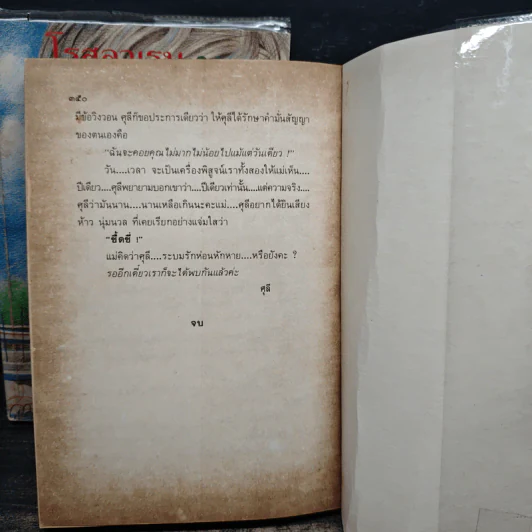 โรสลาเรน
๓๕๐
มีข้อวิงวอน ศุลีก็ขอประการเดียวว่า ให้ศุลีได้รักษาคำมั่นสัญญา
ของตนเองคือ
"ฉันจะคอยคุณไม่มากไม่น้อยไปแม้แต่วันเดียว !"
วัน....เวลา จะเป็นเครื่องพิสูจน์เราทั้งสองให้แม่เห็น....
ปีเดียว....ศุลีพยายามบอกเขาว่า....ปีเดียวเท่านั้น....แต่ความจริง....
ศุลีว่ามันนาน....นานเหลือเกินนะคะแม่....ศุลีอยากได้ยินเสียง
ห้าว นุ่มนวล ที่เคยเรียกอย่างแจ่มใสว่า
"ซี้ดซี่ !"
แม่คิดว่าศุลี....ระบมรักห่อนหักหาย....หรือยังคะ ?
รออีกเดี๋ยวเราก็จะได้พบกันแล้วค่ะ
ศุลี
จบ